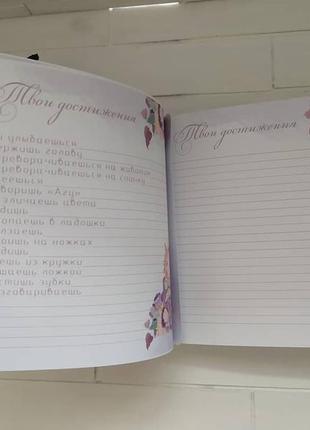 Твои достижения
улыбаешься
ержишь голову
ереворачиваешься на животик
ереворачиваешься на спинку
еешься
воришь «Агу»
зличаешь цвета
дишь
опаешь в ладошки
лзаешь
оишь на ножках
дишь
ешь из кружки
шаешь ложкой
стишь зубки
зговариваешь
Твои достижения